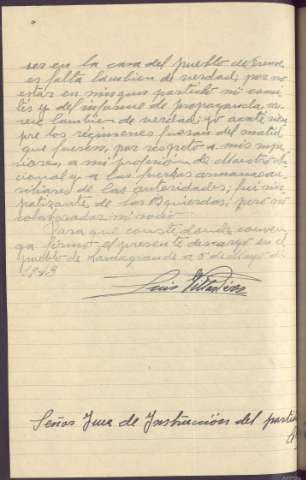 ses en la casa del pueblo de
es falta tambien de verdad, por no
estar en ningun partido ni comi-
tés y del informe de propaganda,
tambien de verdad; yo acaté siem-
pre los regimenes fuesen del matiz
que fuesen, por respeto a mis
a mi profesión de Maestro
cional y a las fuerzas armadas au-
xiliares de las autoridades; fui sim-
patizante de las Izquierdas, pero no
colaborador ni socio
Para que conste, donde conven-
ga firmo el presente descargo en el
pueblo de a 5 de Mayo de
1943
Luis
Señor Juez de Instrucción del partido